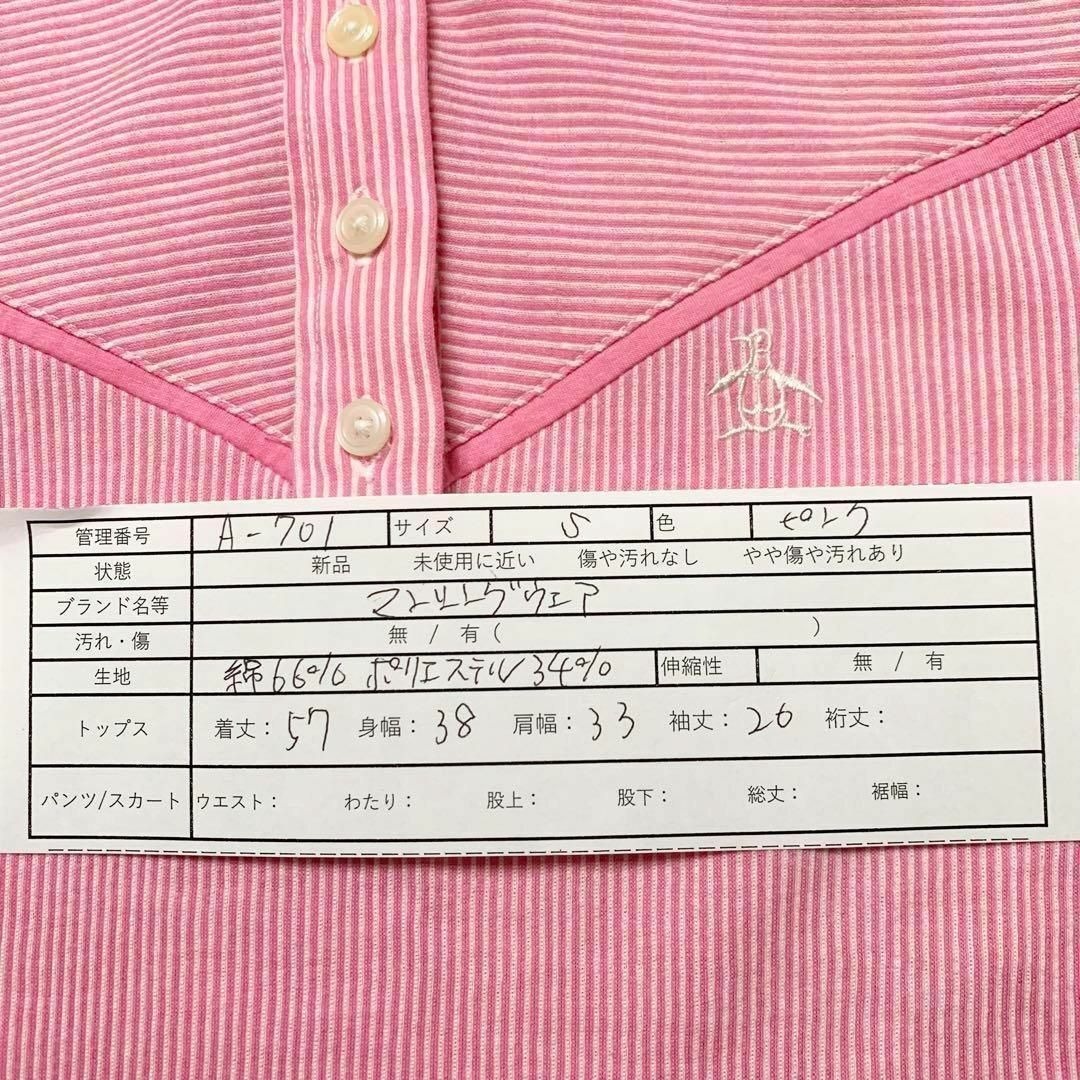 管理番号 A-701 サイズ S 色 ピンク
状態 新品 未使用に近い 傷や汚れなし やや傷や汚れあり
ブランド名等 マンシングウェア
汚れ・傷 無 / 有 ( )
生地 綿66% ポリエステル34% 伸縮性 無 / 有
トップス 着丈：57 身幅：38 肩幅：33 袖丈：26 裄丈：
パンツ/スカート ウエスト： わたり： 股上： 股下： 総丈： 裾幅：